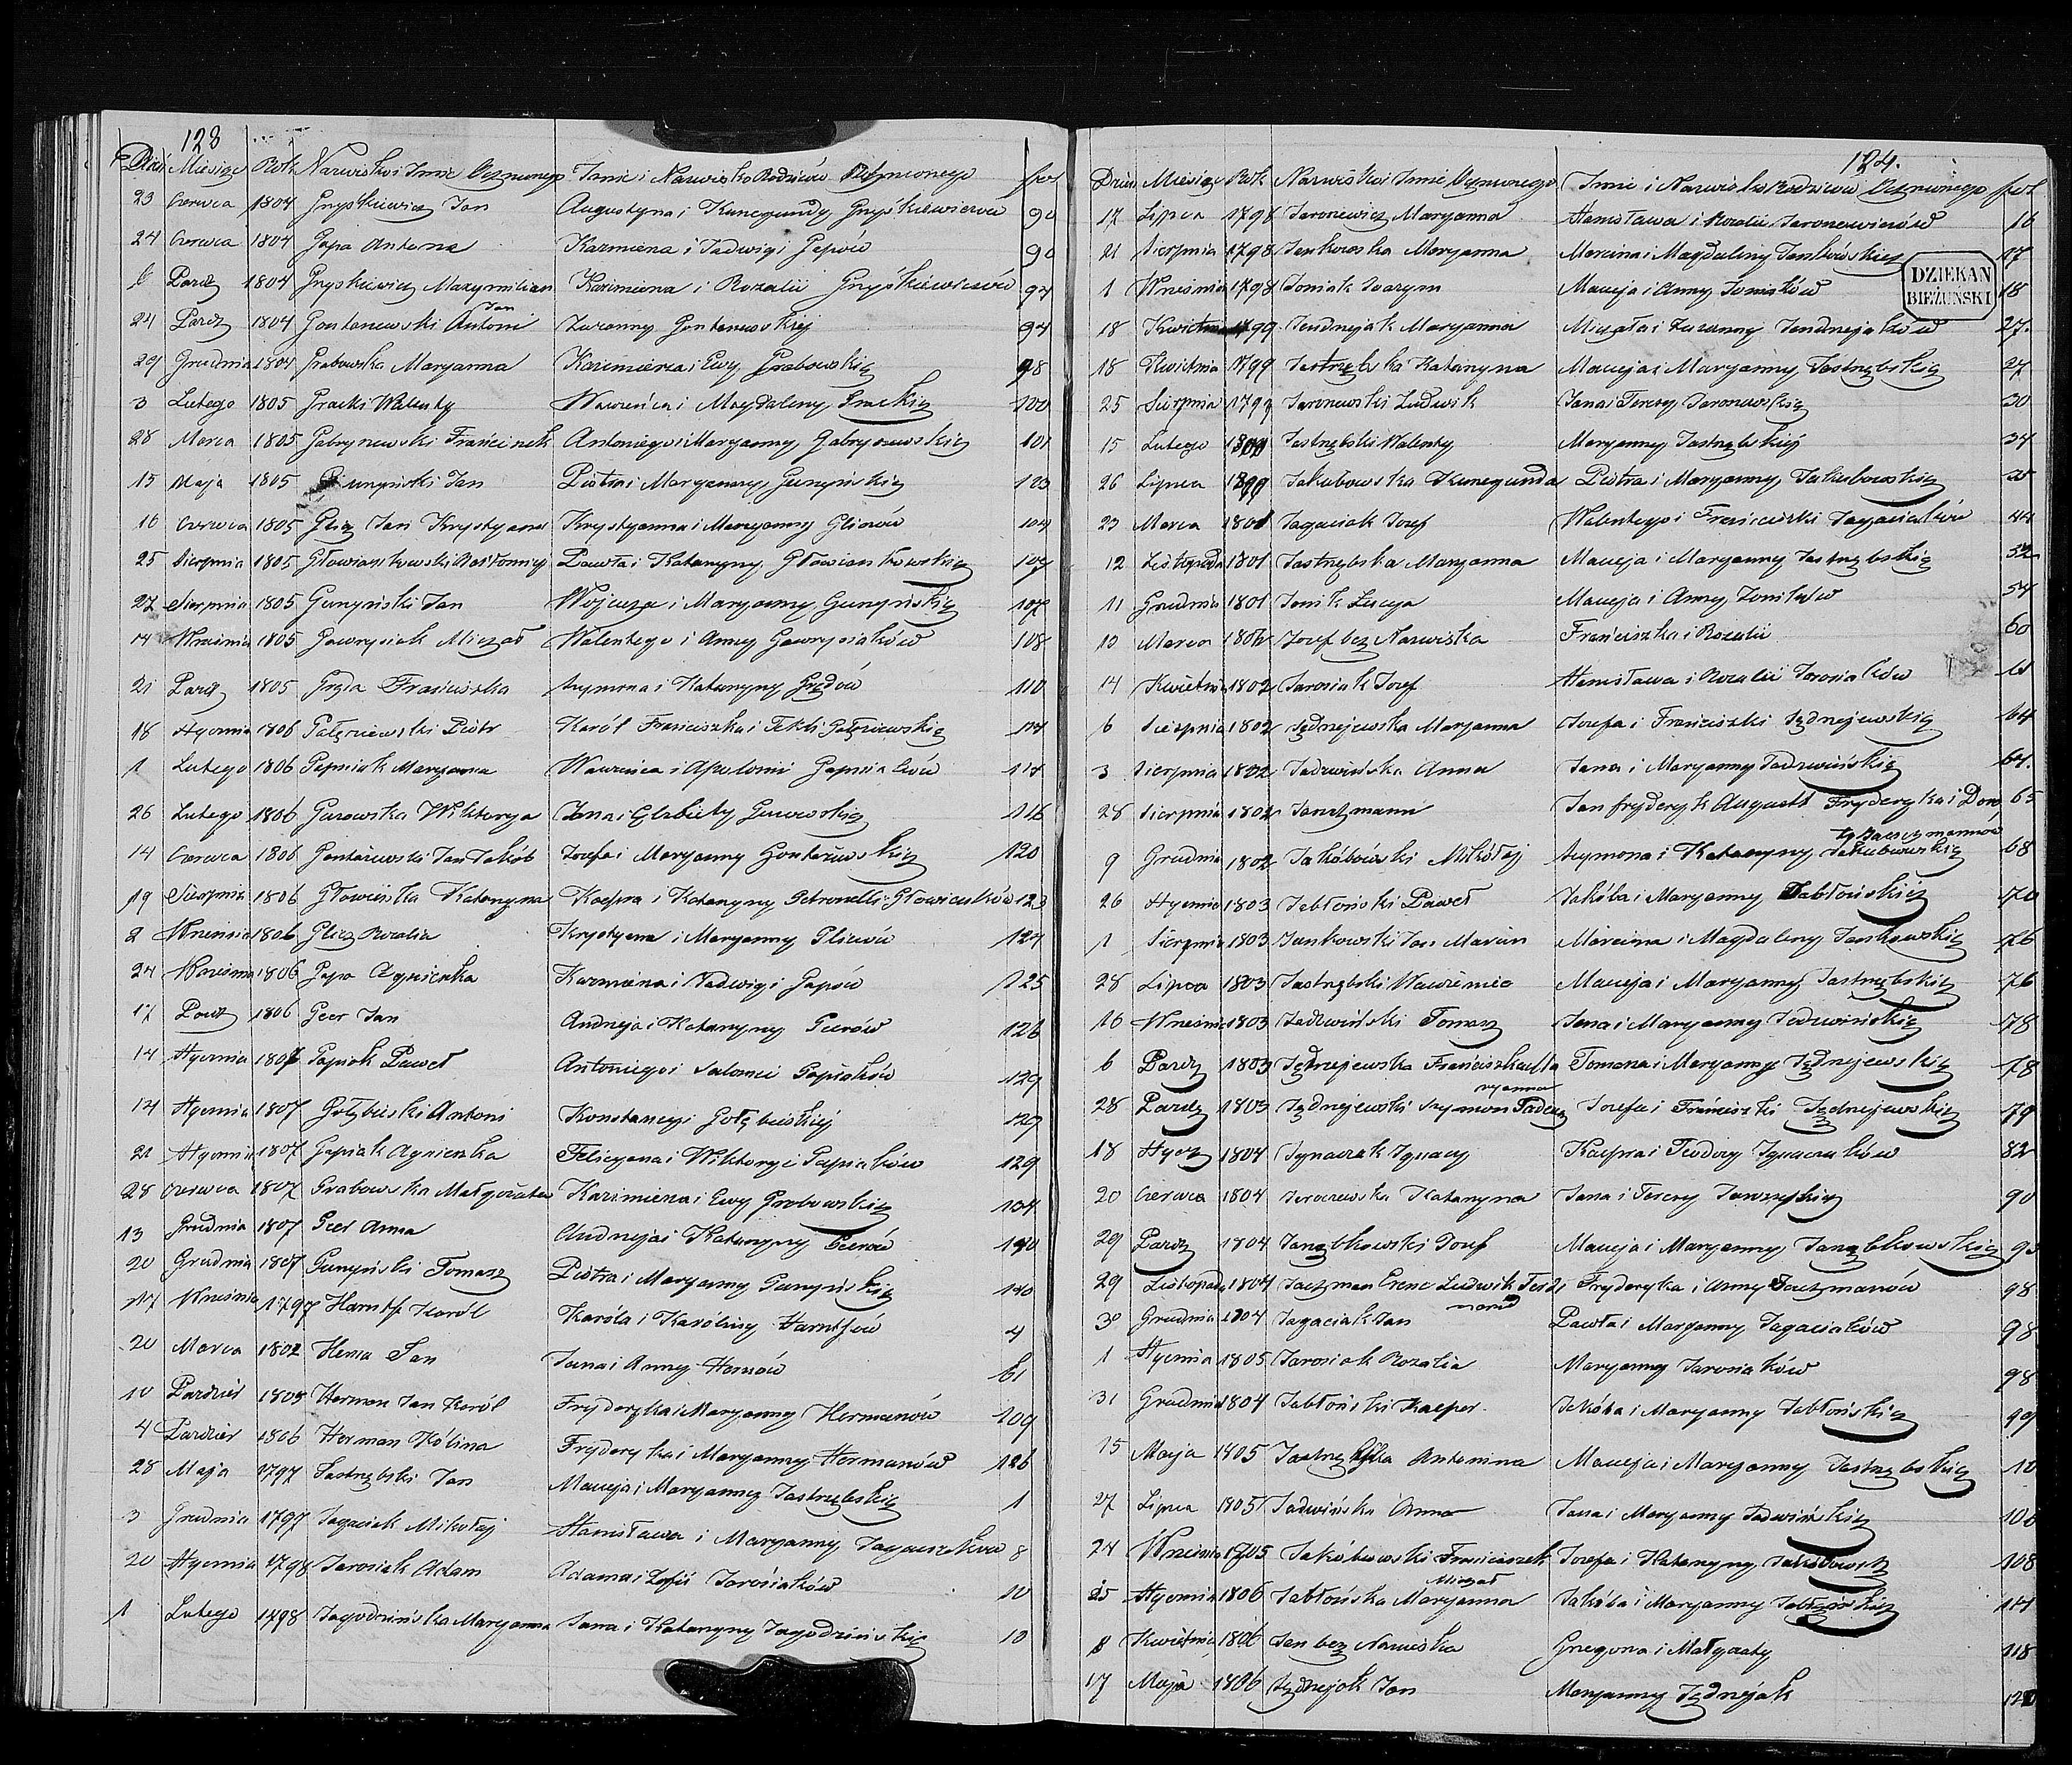 128
Dzień Miesiąc Rok Nazwisko i Imie Ochrzconego Imie i Nazwisko Rodziców
23 Czerwca 1804 Gryszkiewicz Jan Augustyna i Kunegundy Gryszkiewiczów 90
24 Czerwca 1804 Gapa Antoni Kazmierza i Jadwigi Gapów 90
6 Pazdz 1804 Gryszkiewicz Maxymilian Kazimierza i Rozalii Gryszkiewiczów 94
24 Pazdz 1804 Gontarzewski Antoni Jan Zuzanny Gontarzewskiej 94
29 Grudnia 1804 Grabowska Maryanna Kazimierza i Ewy Grabowskich 98
3 Lutego 1805 Gracki Walenty Wawrzeńca i Magdaleny Grackich 100
28 Marca 1805 Gabryszewski Franciszek Antoniego i Maryanny Gabryszewskich 101
15 Maja 1805 Jan Piotra i Maryanny Guzyńskich 103
16 Czerwca 1805 Glicz Jan Krystyan Krystyanna i Maryanny Gliczów 104
25 Sierpnia 1805 Głowiankowski Pawła i Katarzyny Głowiankowskich 107
27 Sierpnia 1805 Guzyński Jan Wojciecha i Maryanny Guzyńskich 107
14 Września 1805 Gawrysiak Michał Walentego i Anny Gawrysiaków 108
21 Pazdz 1805 Gręda Franciszka Szymona i Katarzyny Grędów 110
18 Stycznia 1806 Gałęziewski Piotr Karól Franciszka i Tekli Gałęziewskich 114
1 Lutego 1806 Gapsiak Maryanna Wawrzeńca i Apolonii Gapsiaków 114
26 Lutego 1806 Gurowska Wiktorya Jana i Elzbiety Gurowskich 116
14 Czerwca 1806 Gontarzewski Jan Jakób Jozefa i Maryanny Gontarzewskich 120
19 Sierpnia 1806 Głowińska Katarzyna Kacpra i Katarzyny Petronelli 123
2 Września 1806 Glicz Rozalia Krystyana i Maryanny Gliczów 124
24 Września 1806 Gapa Agnieszka Kazmierza i Jadwigi Gapów 125
17 Pazdz 1806 Geer Jan Andrzeja i Katarzyny Geerów 126
14 Stycznia 1807 Gapiak Paweł Antoniego i Salomei Gapiaków 129
14 Stycznia 1807 Gołębieski Antoni Konstancyi Gołębieskiéj 129
21 Stycznia 1807 Gapiak Agnieszka Felicyana i Wiktoryi Gapiaków 129
28 Czerwca 1807 Grabowska Małgorzata Kazimierza i Ewy Grabowskich 134
13 Grudnia 1807 Geer Anna Andrzeja i Katarzyny Geerów 140
20 Grudnia 1807 Guzyński Tomasz Piotra i Maryanny Guzyńskich 140
17 Września 1797 Karól Karóla i Karóliny 4
20 Marca 1802 Hensa Jan Jana i Anny Hensów 61
10 Pazdzier 1805 Herman Jan Karól Fryderyka i Maryanny Hermanów 109
4 Pazdzier 1806 Herman Fryderyka i Maryanny Hermanów 126
28 Maja 1797 Jastrzębski Jan Macieja i Maryanny Jastrzębskich 1
3 Grudnia 1797 Jagaciak Mikołaj Stanisława i Maryanny 8
20 Stycznia 1798 Jarosiak Adam Adama i Zofii Jarosiaków 10
1 Lutego 1798 Jagodzińska Maryanna Jana i Katarzyny Jagodzińskich 10
124.
Dzień Miesiąc Rok Nazwisko i Imie Ochrzconego Imie i Nazwisko Rodziców Ochrzconego
17 Lipca 1798 Jaroniewicz Maryanna Stanisława i Rozalii Jaroniewiczów 16
21 Sierpnia 1798 Jankowska Maryanna Marcina i Magdaleny Jankowskich 17
DZIEKAN
BIEŻUŃSKI
1 Września 1798 Macieja i Anny 18
18 Kwietnia 1799 Jendrzejak Maryanna Michała i Zuzanny Jendrzejaków 27.
18 Kwietnia 1799 Jastrzębska Katarzyna Macieja i Maryanny Jastrzębskich 27
25 Sierpnia 1799 Jaronewski Ludwik Jana i Teresy Jaronewskich 30
15 Lutego Jastrzębski Walenty Maryanny Jastrzębskiéj 34
26 Lipca Jakubowska Kunegunda Piotra i Maryanny Jakubowskich
23 Marca 1801 Jagaciak Jozef Walentego i Franciszki Jagaciaków 44
12 Listopada 1801 Jastrzębska Maryanna Macieja i Maryanny Jastrzębskich 52
11 Grudnia 1801 Jonik Łucya Macieja i Anny Joników 54
13 Marca 1802 Jozef bez Nazwiska Franciszka i Rozalii 60
14 Kwietnia 1802 Jarosiak Jozef Stanisława i Rozalii Jarosiaków 61
6 Sierpnia 1802 Jędrzejewska Maryanna Jozefa i Franciszki Jędrzejewskich 64
3 Sierpnia 1802 Jadzwińska Anna Jana i Maryanny Jadzwińskich 64.
28 Sierpnia 1802 Jan fryderyk August Fryderyka i Doro 65
9 Grudnia 1802 Jakóbówski Mikołaj Szymona i Katarzyny Jakubowskich 68
26 Stycznia 1803 Jabłoński Paweł Jakóba i Maryanny Jabłońskich 70
1 Sierpnia 1803 Jankowski Jan Marcin Marcina i Magdaleny Jankowskich 76
28 Lipca 1803 Jastrzębski Wawrzeniec Macieja i Maryanny Jastrzębskich 76
16 Września 1803 Jadzwiński Tomasz Jana i Maryanny Jadzwińskich 78
6 Pazdz 1803 Jędrzejewska Franciszka Ma ryanna Tomasza i Maryanny Jędrzejewskich 78
28 Pazdz 1803 Jędrzejewski Szymon Tadeusz Jozefa i Franciszki Jędrzejewskich 79
18 Stycz 1804 Ignaczak Ignacy Kacpra i Teodory Ignaczaków 82
20 Czerwca 1804 Katarzyna Jana i Teresy 90
29 Pazdz 1804 Janąbkowski Jozef Macieja i Maryanny Janąbkowskich
29 Listopada 1804 Jaczman Ludwik Ferdi nand Fryderyka i Anny Jaczmanów 98
30 Grudnia 1804 Jagaciak Jan Pawła i Maryanny Jagaciaków 98
1 Stycznia 1805 Jarosiak Rozalia Maryanny Jarosiaków 98
31 Grudnia 1804 Jabłoński Kasper Jakóba i Maryanny Jabłońskich 99
15 Maja 1805 Jastrzębska Antonina Macieja i Maryanny Jastrzębskich
27 Lipca 1805 Jadwińska Anna Jana i Maryanny Jadwińskich 106
24 Września 1805 Jakóbowski Franciszek Michał Jozefa i Katarzyny Jakóbowskich 108
25 Stycznia 1806 Jabłońska Maryanna Jakóba i Maryanny Jabłońskich 114
8 Kwietnia 1806 Jan bez Nazwiska Grzegorza i Małgorzaty 118
17 Maja 1806 Jędrzejak Jan Maryanny Jędrzejak